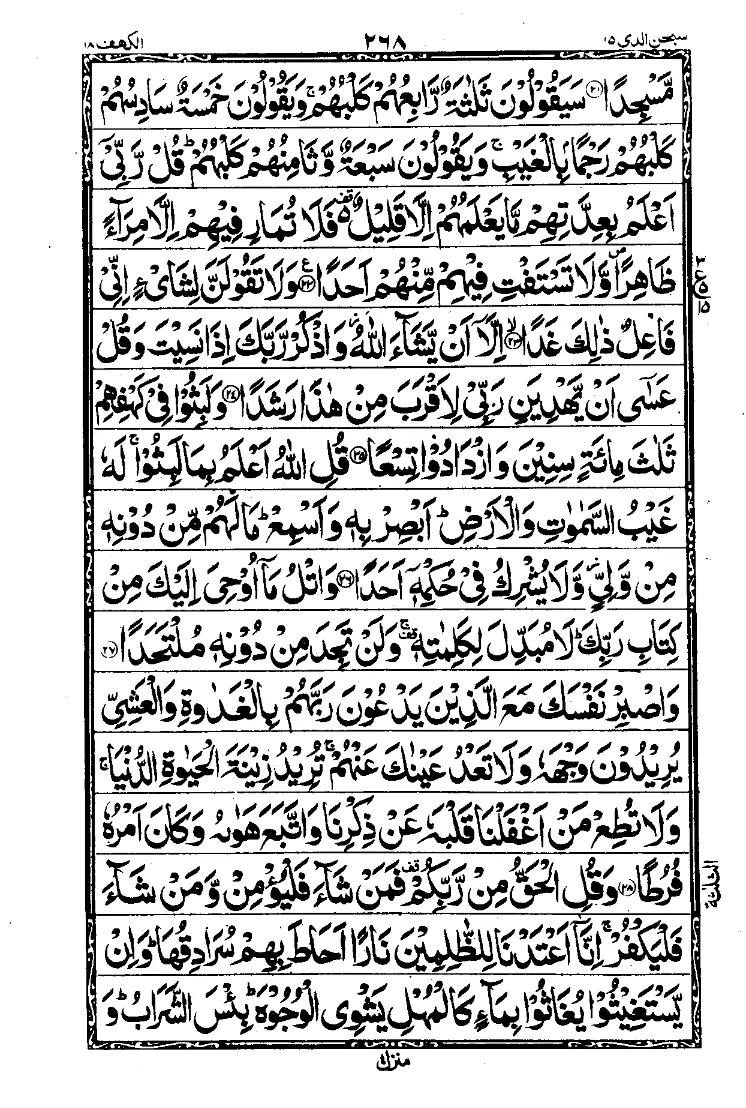 سبحٰن الذی ۱۵ ۲۶۸ الکهف ۱۸
مَّسْجِدًا ﴿۲۱﴾ سَیَقُوْلُوْنَ ثَلٰثَةٌ رَّابِعُهُمْ کَلْبُهُمْ ۚ وَیَقُوْلُوْنَ خَمْسَةٌ سَادِسُهُمْ
کَلْبُهُمْ رَجْمًۢا بِالْغَیْبِ ۚ وَیَقُوْلُوْنَ سَبْعَةٌ وَّثَامِنُهُمْ کَلْبُهُمْ ؕ قُلْ رَّبِّیْۤ
اَعْلَمُ بِعِدَّتِهِمْ مَّا یَعْلَمُهُمْ اِلَّا قَلِیْلٌ ۫۬ فَلَا تُمَارِ فِیْهِمْ اِلَّا مِرَآءً
ظَاهِرًا ۪ وَّلَا تَسْتَفْتِ فِیْهِمْ مِّنْهُمْ اَحَدًا ﴿۲۲﴾ وَلَا تَقُوْلَنَّ لِشَایْءٍ اِنِّیْ
فَاعِلٌ ذٰلِكَ غَدًا ﴿۲۳﴾ اِلَّاۤ اَنْ یَّشَآءَ اللّٰهُ ؗ وَاذْکُرْ رَّبَّكَ اِذَا نَسِیْتَ وَقُلْ
عَسٰۤی اَنْ یَّهْدِیَنِ رَبِّیْ لِاَقْرَبَ مِنْ هٰذَا رَشَدًا ﴿۲۴﴾ وَلَبِثُوْا فِیْ کَهْفِهِمْ
ثَلٰثَ مِائَةٍ سِنِیْنَ وَازْدَادُوْا تِسْعًا ﴿۲۵﴾ قُلِ اللّٰهُ اَعْلَمُ بِمَا لَبِثُوْا ۚ لَهٗ
غَیْبُ السَّمٰوٰتِ وَالْاَرْضِ ؕ اَبْصِرْ بِهٖ وَاَسْمِعْ ؕ مَا لَهُمْ مِّنْ دُوْنِهٖ
مِنْ وَّلِیٍّ ؗ وَّلَا یُشْرِكُ فِیْ حُکْمِهٖۤ اَحَدًا ﴿۲۶﴾ وَاتْلُ مَاۤ اُوْحِیَ اِلَیْكَ مِنْ
کِتَابِ رَبِّكَ ؕ لَا مُبَدِّلَ لِکَلِمٰتِهٖ ۚ۫ وَلَنْ تَجِدَ مِنْ دُوْنِهٖ مُلْتَحَدًا ﴿۲۷﴾
وَاصْبِرْ نَفْسَكَ مَعَ الَّذِیْنَ یَدْعُوْنَ رَبَّهُمْ بِالْغَدٰوةِ وَالْعَشِیِّ
یُرِیْدُوْنَ وَجْهَهٗ وَلَا تَعْدُ عَیْنٰكَ عَنْهُمْ ۚ تُرِیْدُ زِیْنَةَ الْحَیٰوةِ الدُّنْیَا ۚ
وَلَا تُطِعْ مَنْ اَغْفَلْنَا قَلْبَهٗ عَنْ ذِکْرِنَا وَاتَّبَعَ هَوٰىهُ وَکَانَ اَمْرُهٗ
فُرُطًا ﴿۲۸﴾ وَقُلِ الْحَقُّ مِنْ رَّبِّکُمْ ۫ فَمَنْ شَآءَ فَلْیُؤْمِنْ وَّمَنْ شَآءَ
فَلْیَکْفُرْ ۚ اِنَّاۤ اَعْتَدْنَا لِلظّٰلِمِیْنَ نَارًا اَحَاطَ بِهِمْ سُرَادِقُهَا ؕ وَاِنْ
یَّسْتَغِیْثُوْا یُغَاثُوْا بِمَآءٍ کَالْمُهْلِ یَشْوِی الْوُجُوْهَ ؕ بِئْسَ الشَّرَابُ ؕ وَ
ع
الثلثة